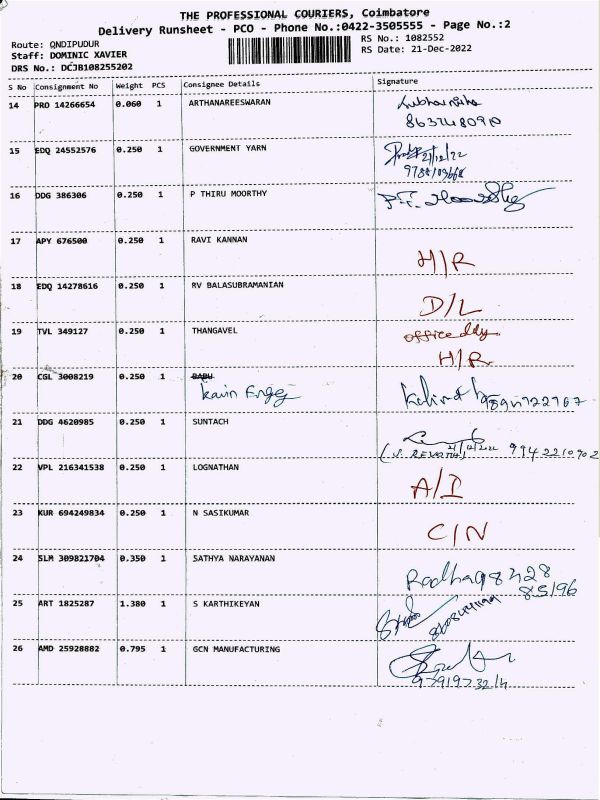 THE PROFESSIONAL COURIERS, Coimbatore
Delivery Runsheet - PCO - Phone No.:0422-3505555 - Page No.:2
Route: QNDIPUDUR RS No.: 1082552
Staff: DOMINIC XAVIER RS Date: 21-Dec-2022
DRS No.: DCJB108255202
S No Consignment No Weight PCS Consignee Details Signature
14 PRO 14266654 0.060 1 ARTHANAREESWARAN
15 EDQ 24552576 0.250 1 GOVERNMENT YARN
21/12/22
16 DDG 386306 0.250 1 P THIRU MOORTHY
17 APY 676500 0.250 1 RAVI KANNAN
H/R
18 EDQ 14278616 0.250 1 RV BALASUBRAMANIAN
D/L
19 TVL 349127 0.250 1 THANGAVEL office ddy
H/R
20 CGL 3008219 0.250 1 BABU
Kavin Engg
21 DDG 4620985 0.250 1 SUNTACH
21/12/2022 9942210902
22 VPL 216341538 0.250 1 LOGNATHAN
A/I
23 KUR 694249834 0.250 1 N SASIKUMAR
C/N
24 SLM 309821704 0.350 1 SATHYA NARAYANAN
Radha 98428
85196
25 ART 1825287 1.380 1 S KARTHIKEYAN
26 AMD 25928882 0.795 1 GCN MANUFACTURING